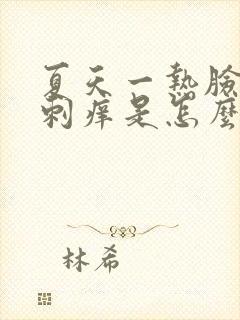 夏天一熱臉
刺痒是怎麼
林希